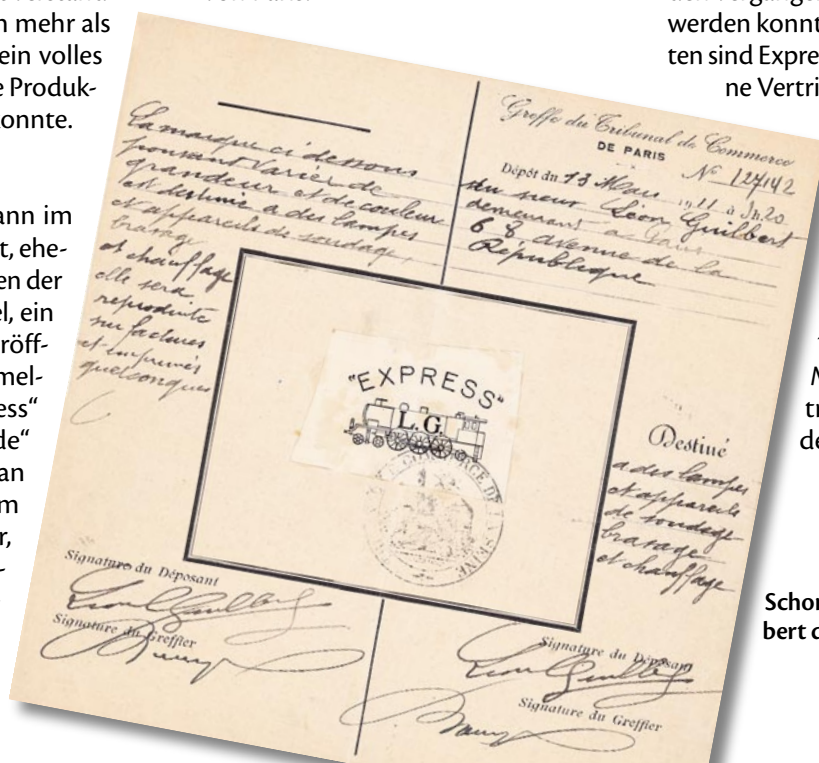 n mehr als
ein volles
e Produk-
konnte.
ann im
t, ehe-
en der
el, ein
röff-
mel-
ess“
de“
an
m
r,
werden konnt
ten sind Expre
ne Vertri
M
tr
de
Schon
bert d
La marque ci dessous
pouvant varier de
grandeur et de couleur
est destinée a des lampes
et appareils de soudage,
brasage
et chauffage
elle sera
reproduite
sur factures
et imprimés
quelconques
Greffe du Tribunal de Commerce
DE PARIS
N° 127142
Dépôt du 13 Mars 1911 à 3h.20
du sieur Léon Guilbert
demeurant a Paris
68 avenue de la
République
"EXPRESS"
L.G.
COMMERCE DE LA SEINE
Destiné
a des lampes
et appareils
de soudage
brasage
et chauffage
Signature du Déposant
Signature du Greffier
Signature du Déposant
Signature du Greffier